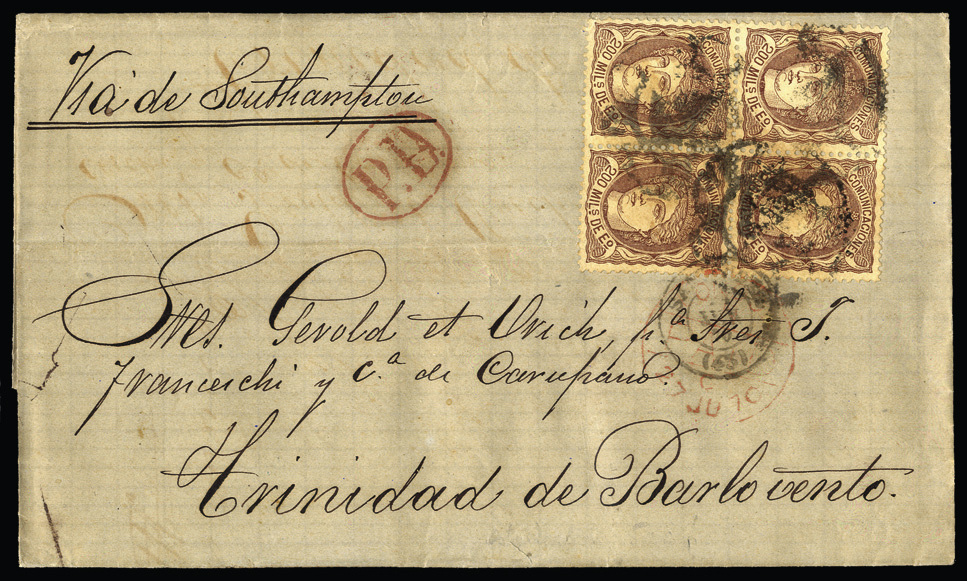 Via de Southampton
P.D.
200 MILS DE Eº COMUNICACIONES
200 MILS DE Eº COMUNICACIONES
200 MILS DE Eº COMUNICACIONES
MILS DE Eº COMUNICACIONES
Sres. Gerold et Urich, p.ª Sres J.
Franceschi y C.ª de Carupano.
Trinidad de Barlovento.